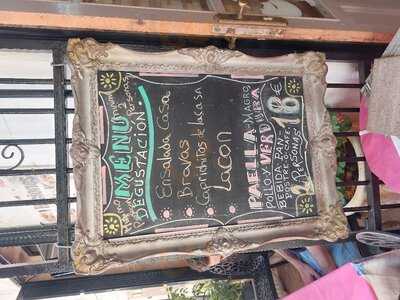 MENU
2
Personas
DEGUSTACIÓN
Ensalada Casa
Bravas
Caprichitos de la Casa
Lacon
PAELLA MAGRO
POLLO Y VERDURA
BEBIDA PAN
POSTRE O CAFE
2 PERSONAS
18 €